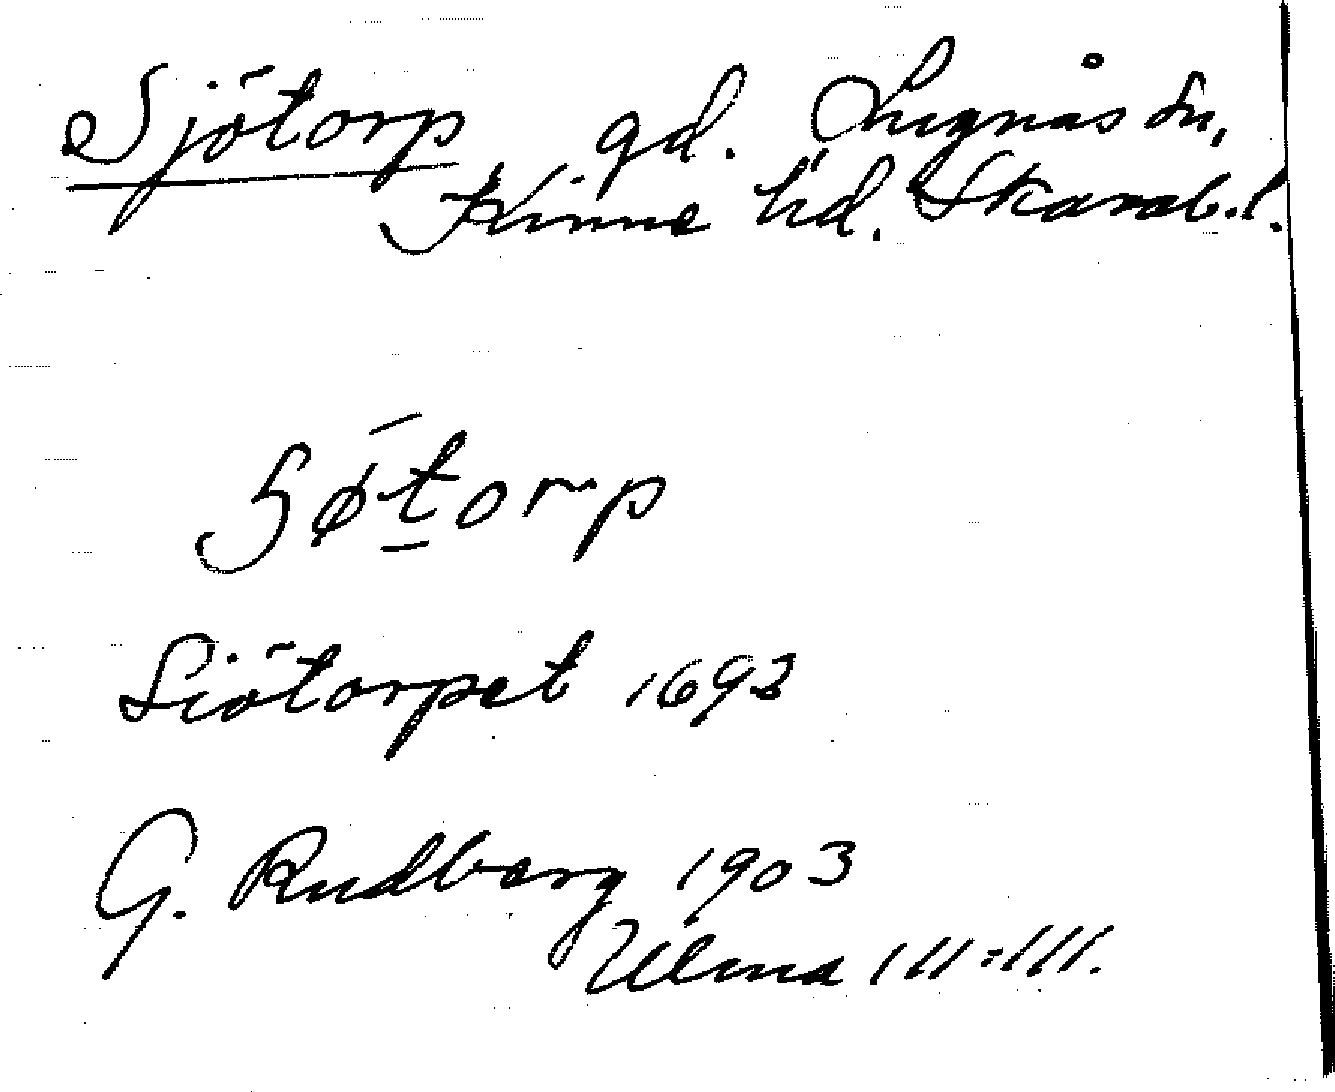 Sjötorp gd. Lugnås sn,
Kinne hd. Skarab. l.
Søt̲orp
Siötorpet 1692
G. Rudberg 1903
Ulma 111:111.